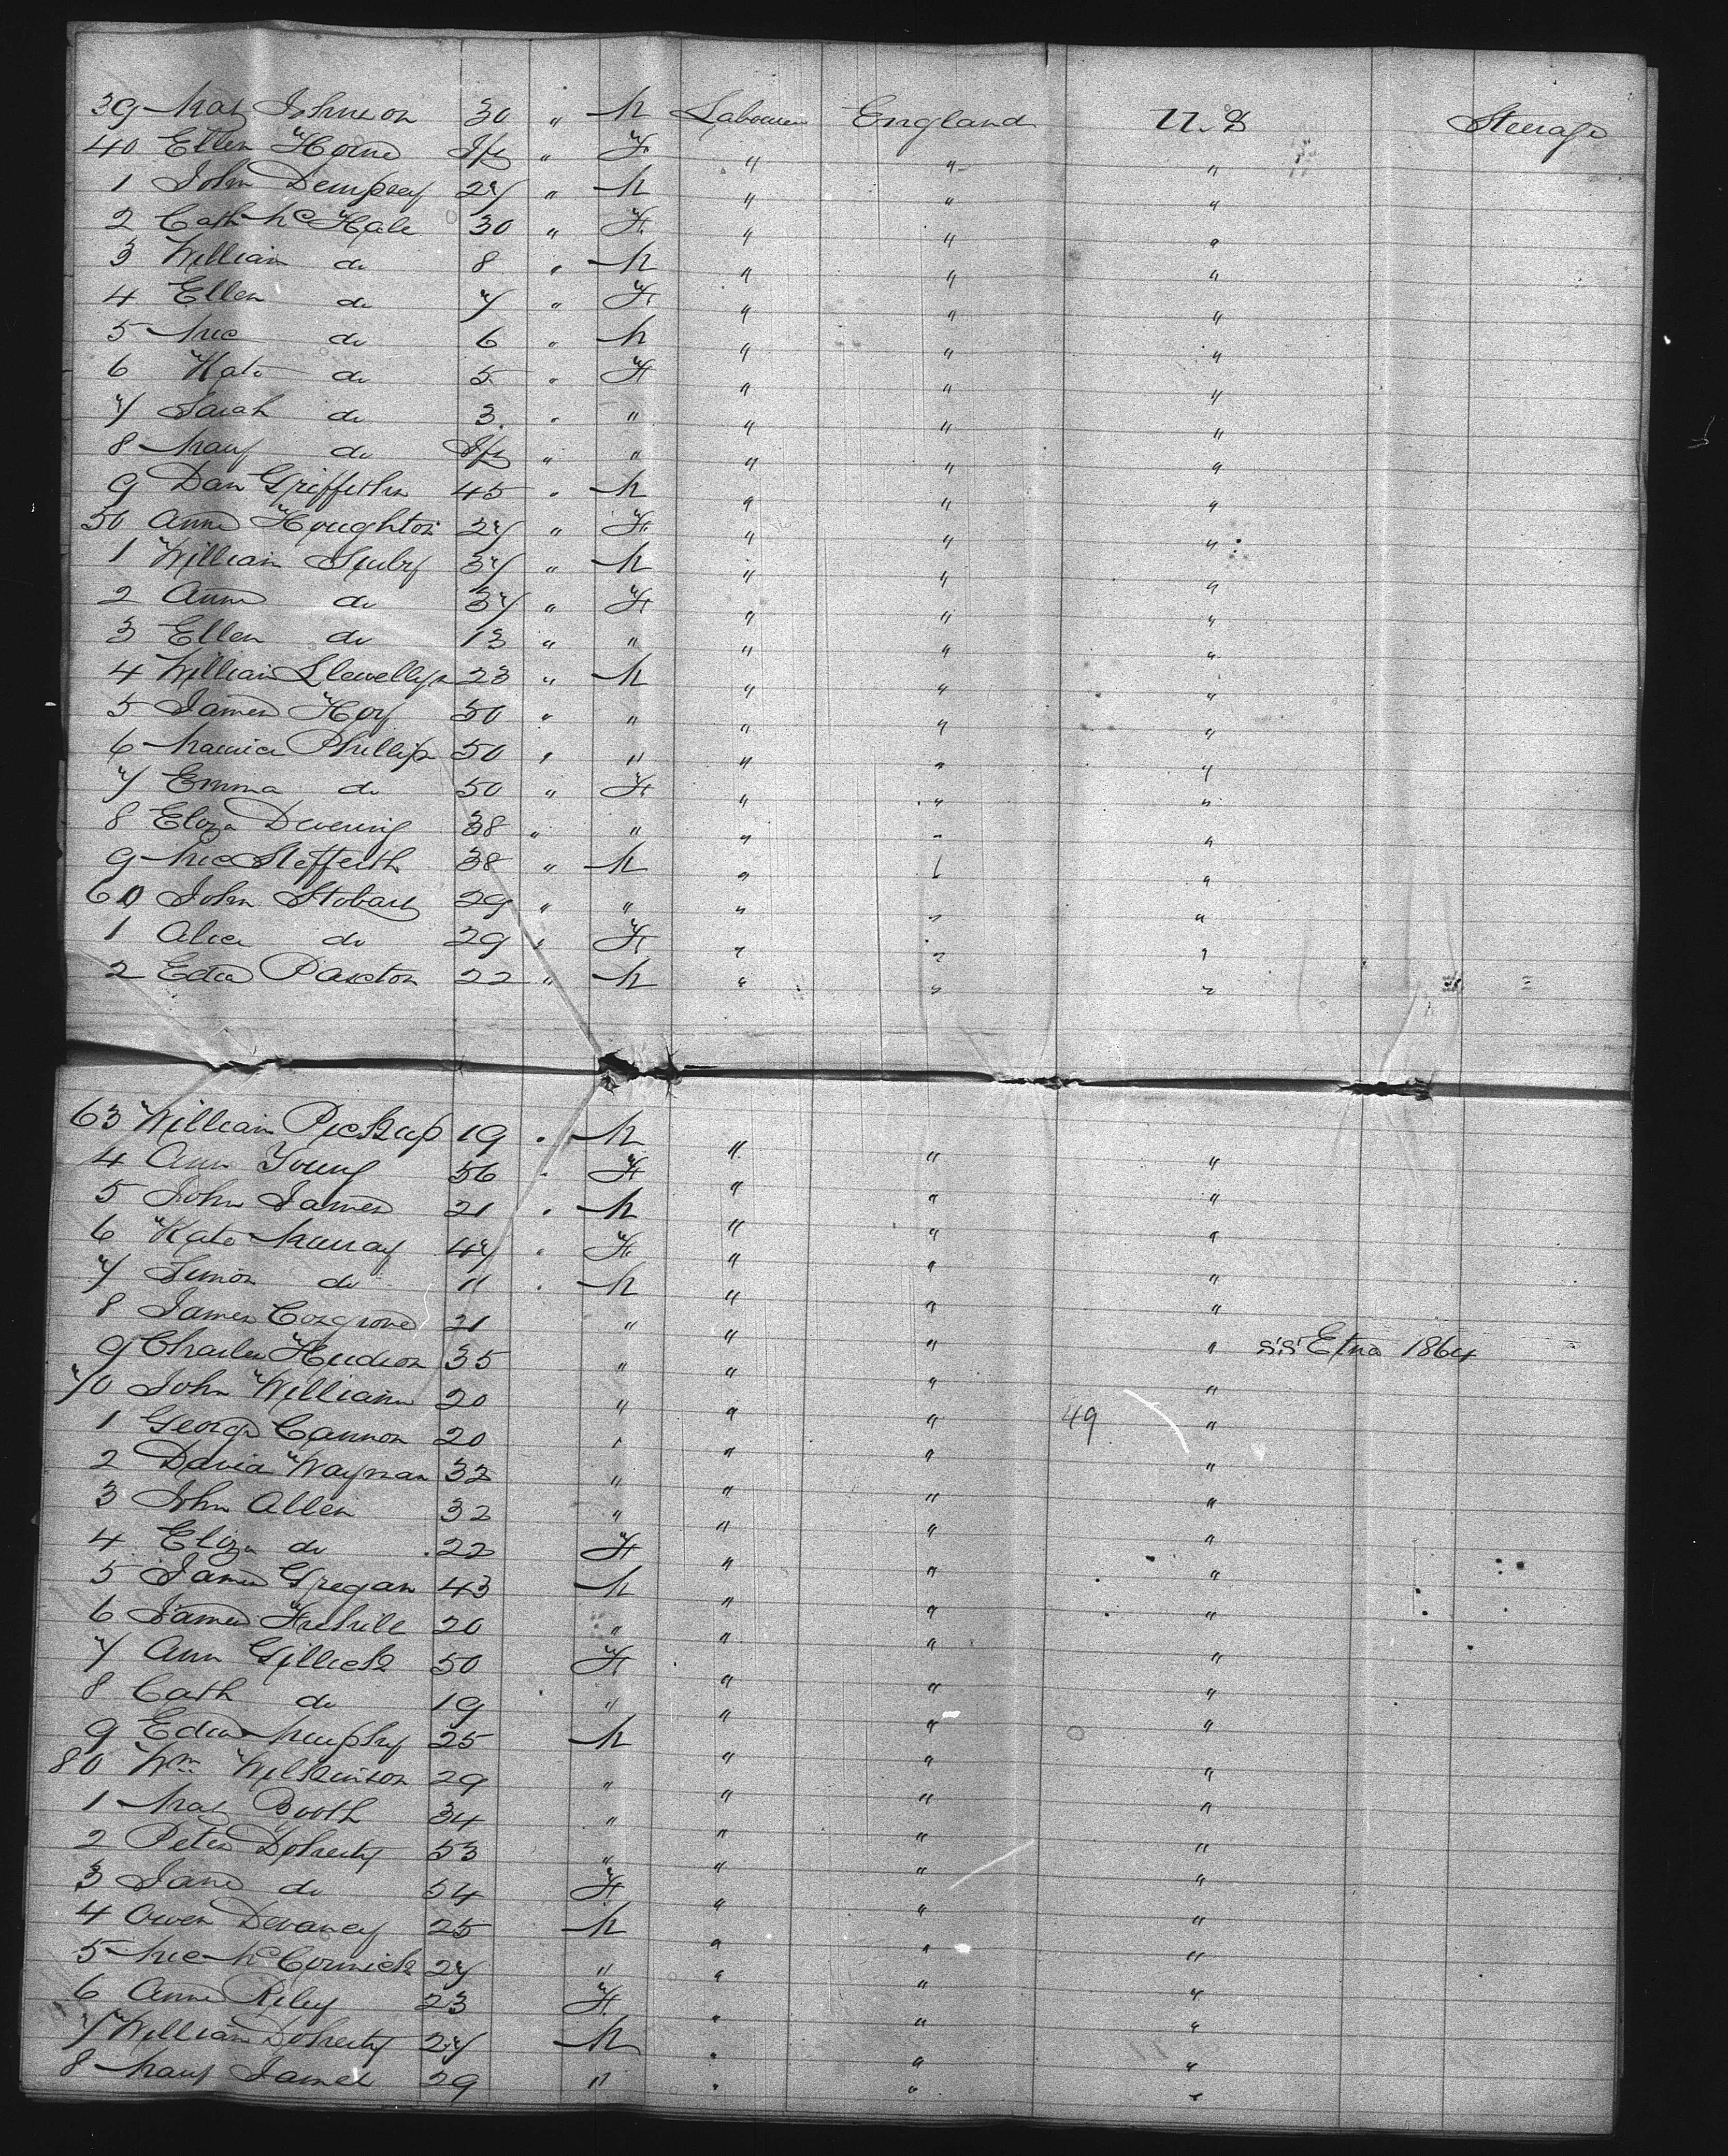 39 Mat Johnson 30 " M Labourer England U.S Steerage
40 Ellen Horne Inf " F " " "
1 John Dempsey 27 " M " " "
2 Cath McHale 30 " F " " "
3 William do 8 " M " " "
4 Ellen do 7 " F " " "
5 Mic do 6 " M " " "
6 Kate do 5 " F " " "
7 Sarah do 3 " " " " "
8 Mary do Inf " " " " "
9 Dan Griffiths 45 " M " " "
50 Anne Houghton 27 " F " " "
1 William 37 " M " " "
2 Anne do 37 " F " " "
3 Ellen do 13 " " " " "
4 William Llewellyn 23 " M " " "
5 James Hoy 50 " " " " "
6 Maurice Phillips 50 " " " " "
7 Emma do 50 " F " " "
8 Eliza 38 " " " " "
9 Mic 38 " M " " "
60 John Stobart 29 " " " " "
1 Alice do 29 " F " " "
2 Edwd Paxton 22 " M " " "
63 William Pickup 19 " M " " "
4 Ann Young 56 " F " " "
5 John James 21 " M " " "
6 Kate Murray 47 " F " " "
7 Simon do 11 " M " " "
8 James Cosgrove 21 " " " "
9 Charles Hudson 35 " " " " S.S. Etna 1864
70 John Williams 20 " " " "
1 George Cannon 20 " " " 49 "
2 David Wayman 32 " " " "
3 John Allen 32 " " " "
4 Eliza do 22 F " " "
5 James Gregan 43 M " " "
6 James 20 " " " "
7 Ann Gillick 50 F " " "
8 Cath do 19 " " " "
9 Edwd Murphy 25 M " " "
80 Wm Wilkinson 29 " " " "
1 Mat Booth 34 " " " "
2 Peter Doherty 53 " " " "
3 Jane do 54 F " " "
4 Owen Devaney 25 M " " "
5 Mic McCormick 27 " " " "
6 Anne Riley 23 F " " "
7 William Doherty 27 M " " "
8 Mary James 29 " " " "